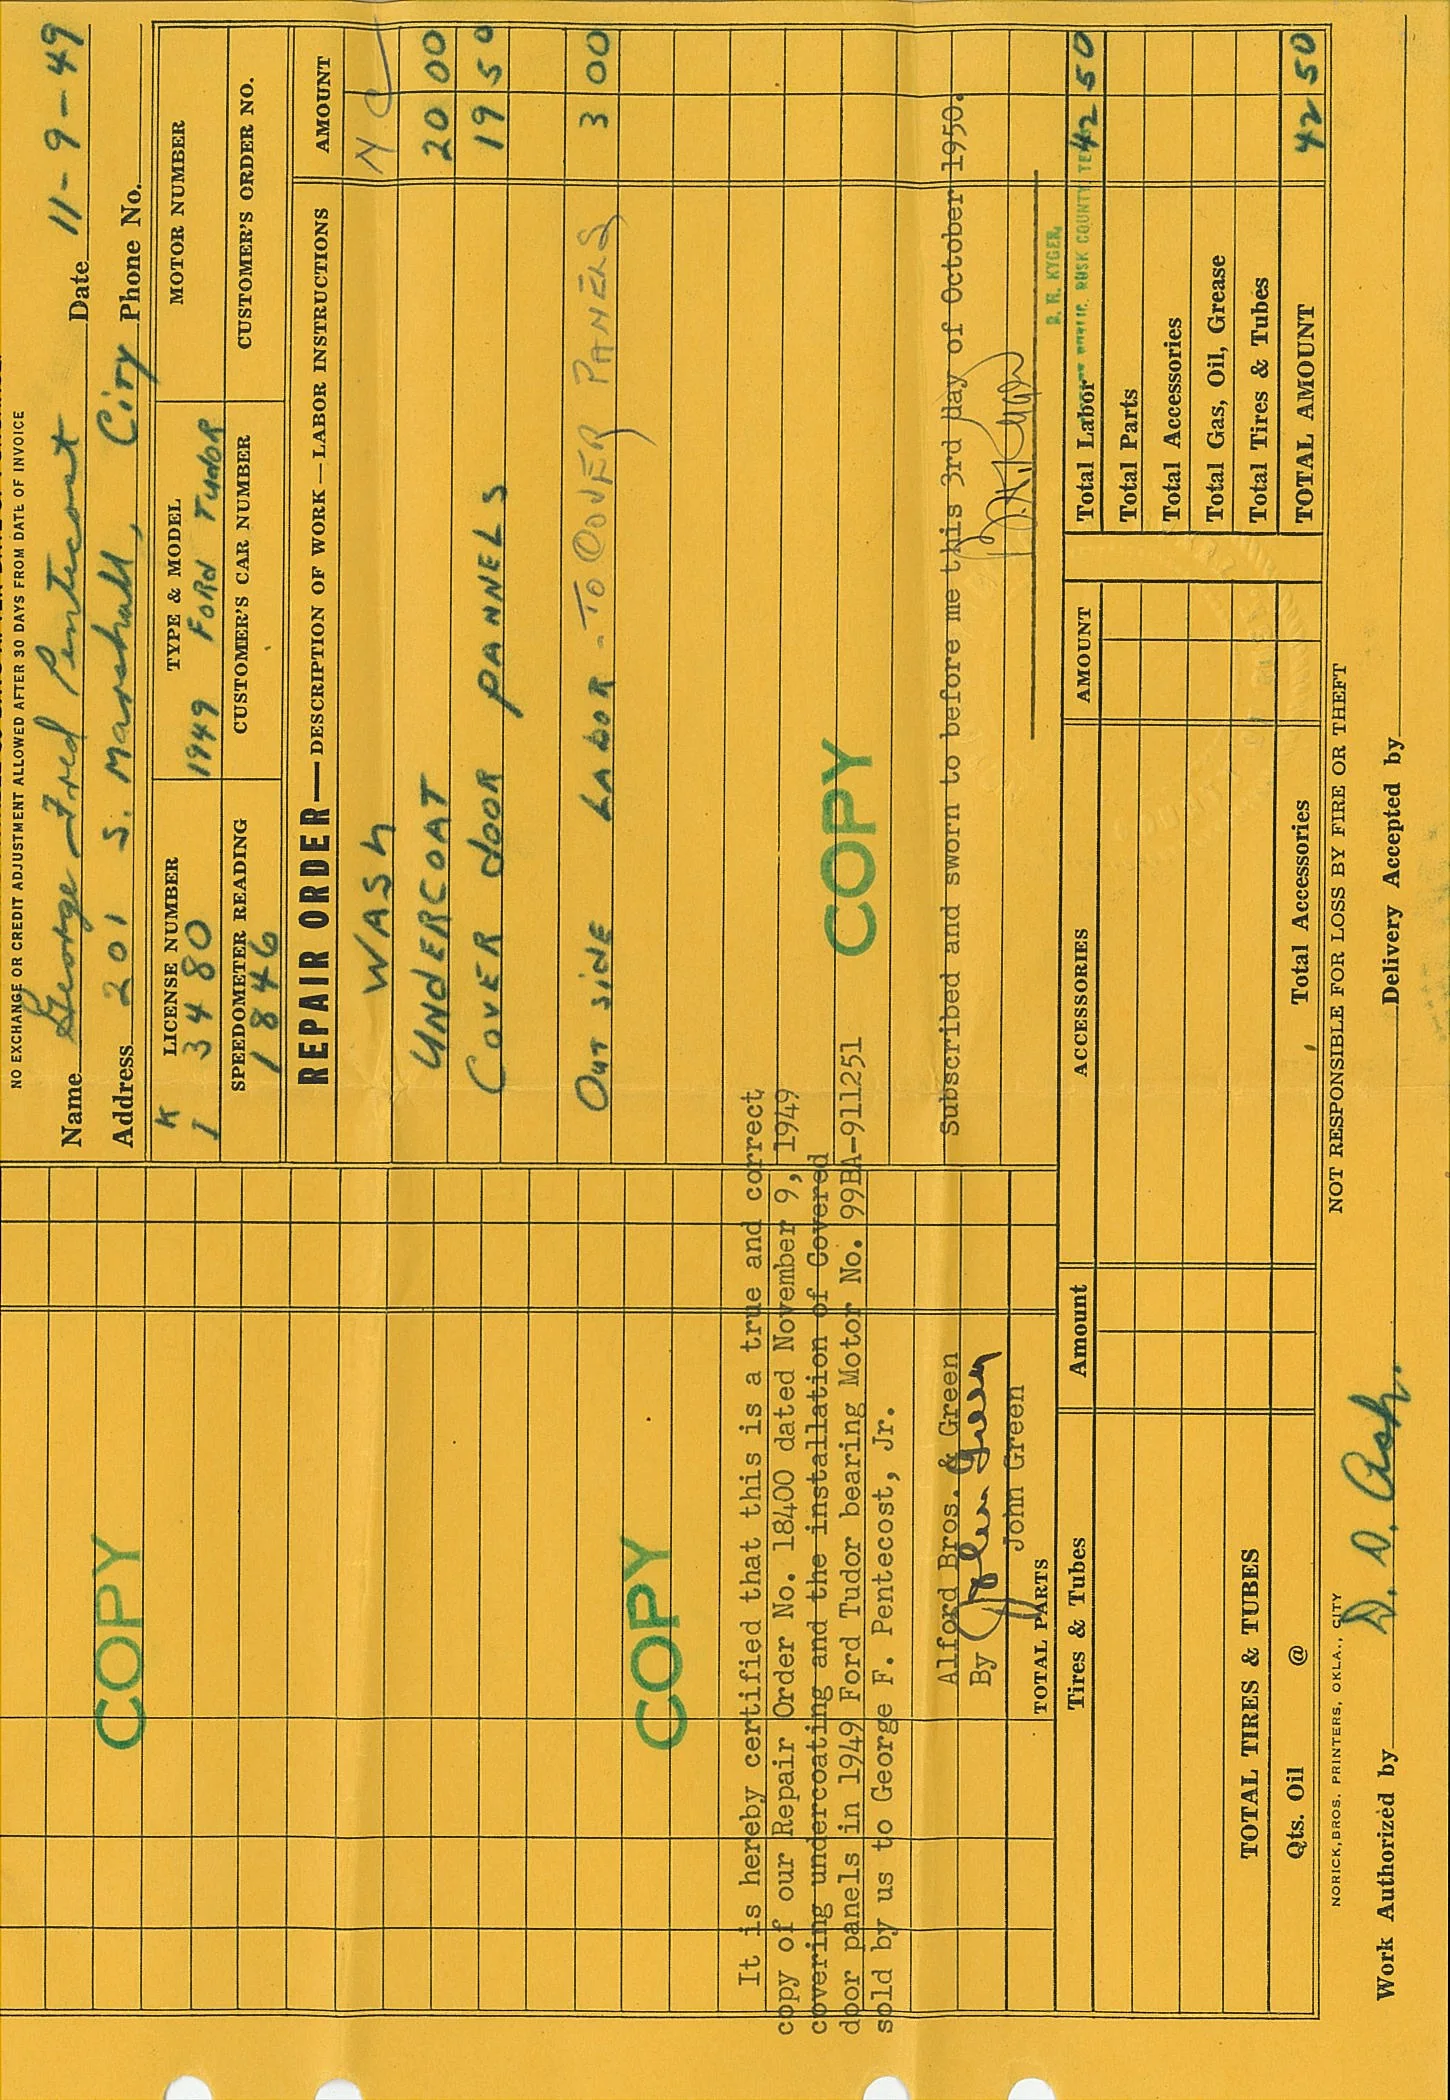 NO EXCHANGE OR CREDIT ADJUSTMENT ALLOWED AFTER 30 DAYS FROM DATE OF INVOICE
Name George Fred Pentecost Date 11-9-49
Address 201 S. Marshall, City Phone No.
LICENSE NUMBER TYPE & MODEL MOTOR NUMBER
K
J 3480 1949 FORD TUDOR
SPEEDOMETER READING CUSTOMER'S CAR NUMBER CUSTOMER'S ORDER NO.
1846
REPAIR ORDER—DESCRIPTION OF WORK—LABOR INSTRUCTIONS AMOUNT
WASH N C
UNDERCOAT 20 00
COVER dOOR PANNELS 19 50
OUT SiDE LABOR - TO COVER PANELS 3 00
COPY
COPY
COPY
It is hereby certified that this is a true and correct
copy of our Repair Order No. 18400 dated November 9, 1949
covering undercoating and the installation of Covered
door panels in 1949 Ford Tudor bearing Motor No. 99BA-911251
sold by us to George F. Pentecost, Jr.
Alford Bros. & Green
By John Green
John Green
Subscribed and sworn to before me this 3rd day of October 1950.
D. H. KYGER,
PUBLIC, RUSK COUNTY, TE
TOTAL PARTS
Tires & Tubes Amount ACCESSORIES AMOUNT Total Labor 42 50
Total Parts
Total Accessories
Total Gas, Oil, Grease
TOTAL TIRES & TUBES Total Tires & Tubes
Qts. Oil @ Total Accessories TOTAL AMOUNT 42 50
NORICK BROS. PRINTERS, OKLA., CITY NOT RESPONSIBLE FOR LOSS BY FIRE OR THEFT
Work Authorized by D. D. Ash. Delivery Accepted by